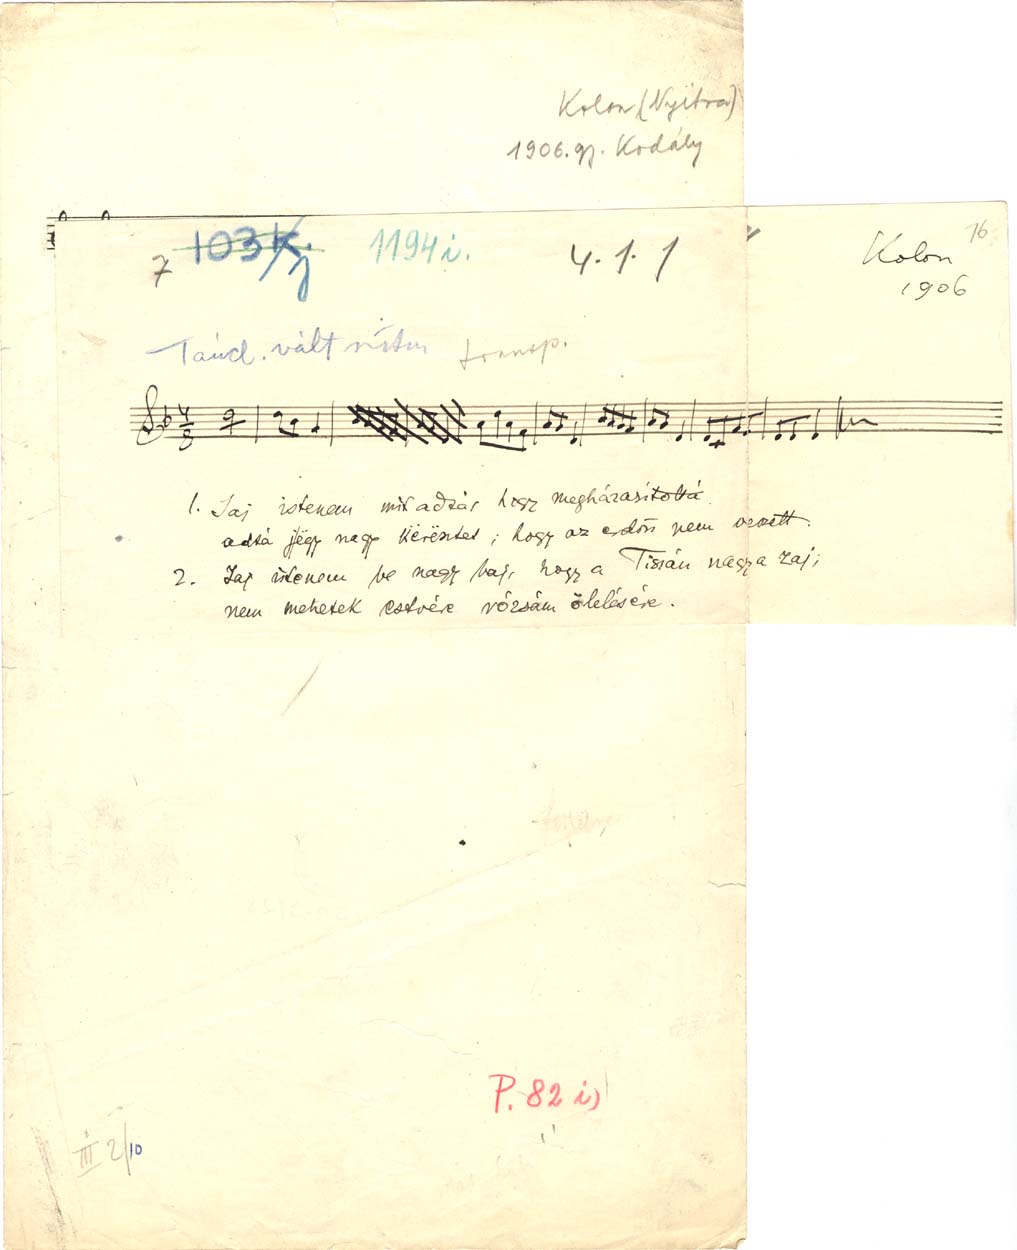 Kolon (Nyitra)
1906. gy. Kodály
16
7 103 K/j 1194 i. 4. 1. 1 Kolon
1906
Táncd. vált
4 8
1. Jaj istenem mit adzás hogy megházasítottá
adtá jëgy nagy këreśztet ; hogy az erdőn nem vezett.
2. Jaj istenem be nagy baj, hogy a Tiszán nagy a zaj;
nem mehetek estvére rózsám ölelésére.
P. 82 i)
III 2/10